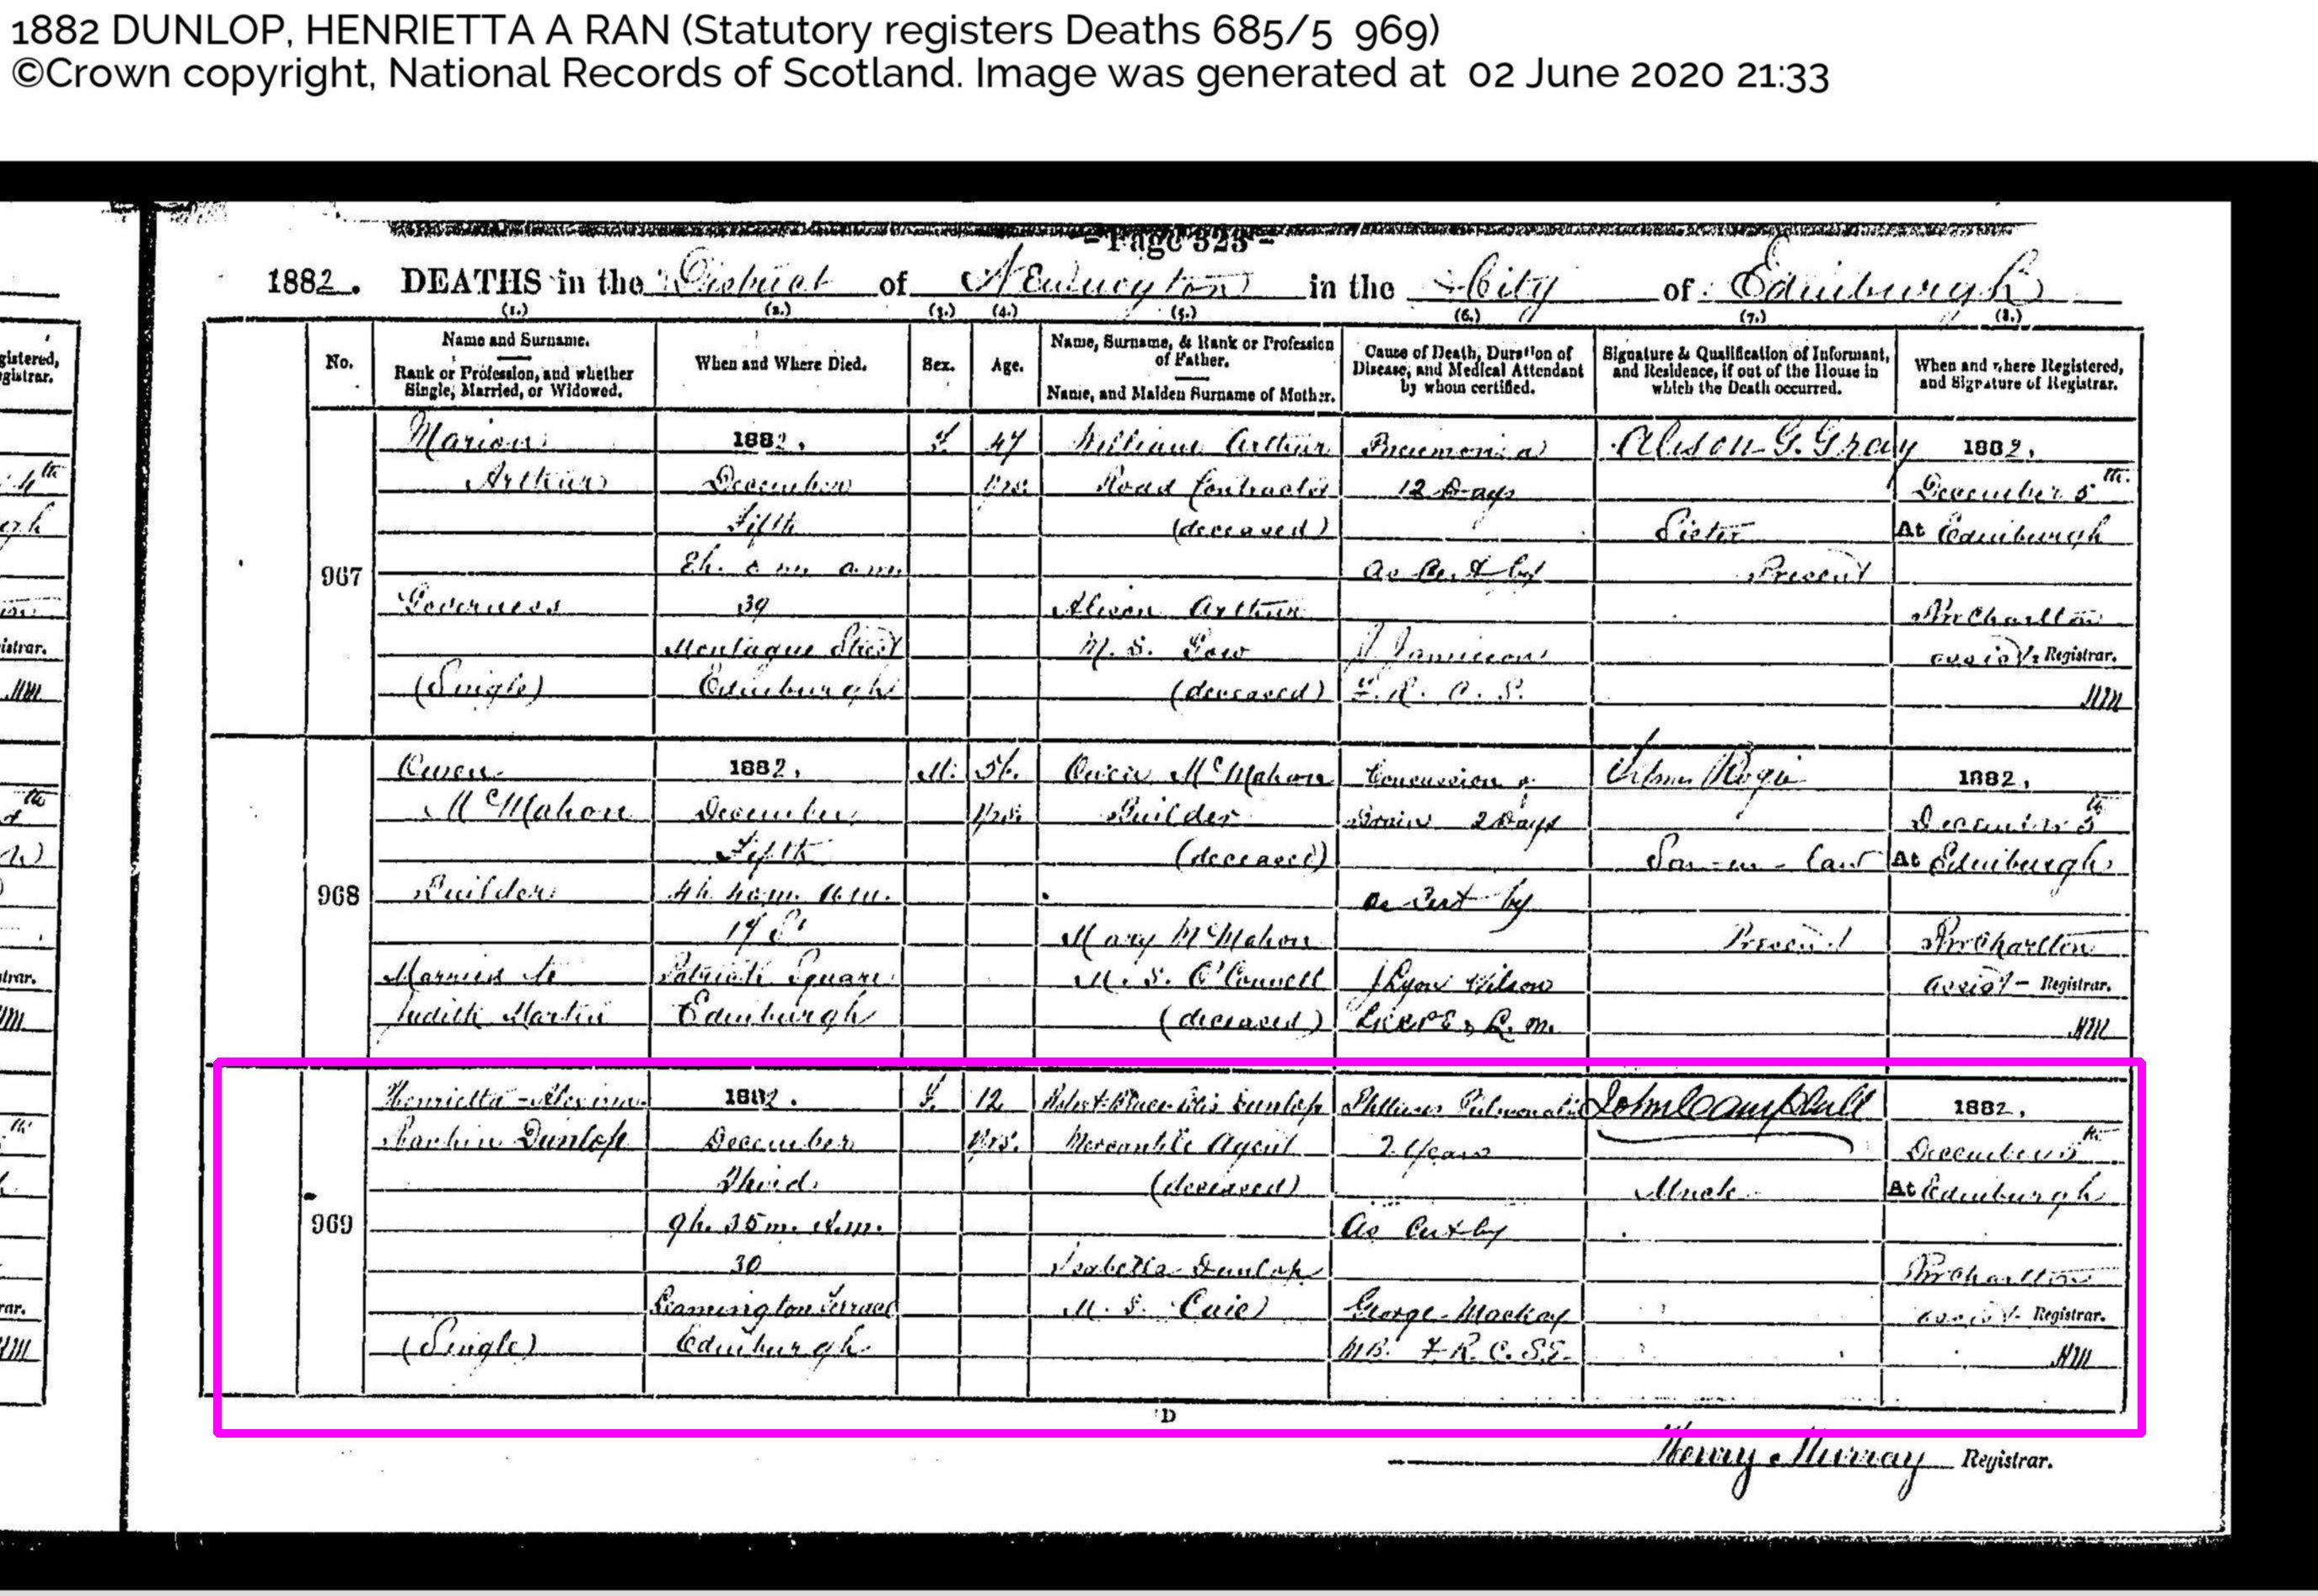 1882 DUNLOP, HENRIETTA A RAN (Statutory registers Deaths 685/5 969)
©Crown copyright, National Records of Scotland. Image was generated at 02 June 2020 21:33
- Page 323 -
1882. DEATHS in the District of Newington in the City of Edinburgh
(1.) (2.) (3.) (4.) (5.) (6.) (7.) (8.)
No.
Name and Surname.
Rank or Profession, and whether
Single, Married, or Widowed.
When and Where Died.
Sex.
Age.
Name, Surname, & Rank or Profession
of Father.
Name, and Maiden Surname of Mother.
Cause of Death, Duration of
Disease, and Medical Attendant
by whom certified.
Signature & Qualification of Informant,
and Residence, if out of the House in
which the Death occurred.
When and where Registered,
and Signature of Registrar.
967
Marion
Arthur
Governess
(Single)
1882.
December
Fifth
39
Montague Street
Edinburgh
F
47
Yrs.
William Arthur
Road Contractor
(deceased)
Alison Arthur
M. S. Gow
(deceased)
Pneumonia
12 Days
As Cert by
Jamieson
F. R. C. S.
Alison G. Gray
Sister
Present
1882.
December 5th
At Edinburgh
Charlton
assist. Registrar.
HM
968
Owen
McMahon
Builder
Married to
Judith Martin
1882.
December
Fifth
4h. 40m. a.m.
17
St Patrick Square
Edinburgh
M.
56.
Yrs.
Owen McMahon
Builder
(deceased)
Mary McMahon
M. S. O'Connell
(deceased)
Concussion of
Brain 2 Days
as Cert by
J Lyon Wilson
Son-in-law
Present
1882.
December 5th
At Edinburgh
Charlton
assist - Registrar.
HM
969
Henrietta
Rankin Dunlop
(Single)
1882.
December
Third
9h. 35m.
30
Leamington Terrace
Edinburgh
F.
12
Yrs.
Robert Dunlop
Mercantile Agent
(deceased)
Isabella Dunlop
M. S. Cuie
Phthisis Pulmonalis
2 Years
As Cert by
George Mackay
MB. F. R. C. S. E.
John Campbell
Uncle
1882.
December 5th
At Edinburgh
Charlton
assist. Registrar.
HM
D
Henry Murray Registrar.